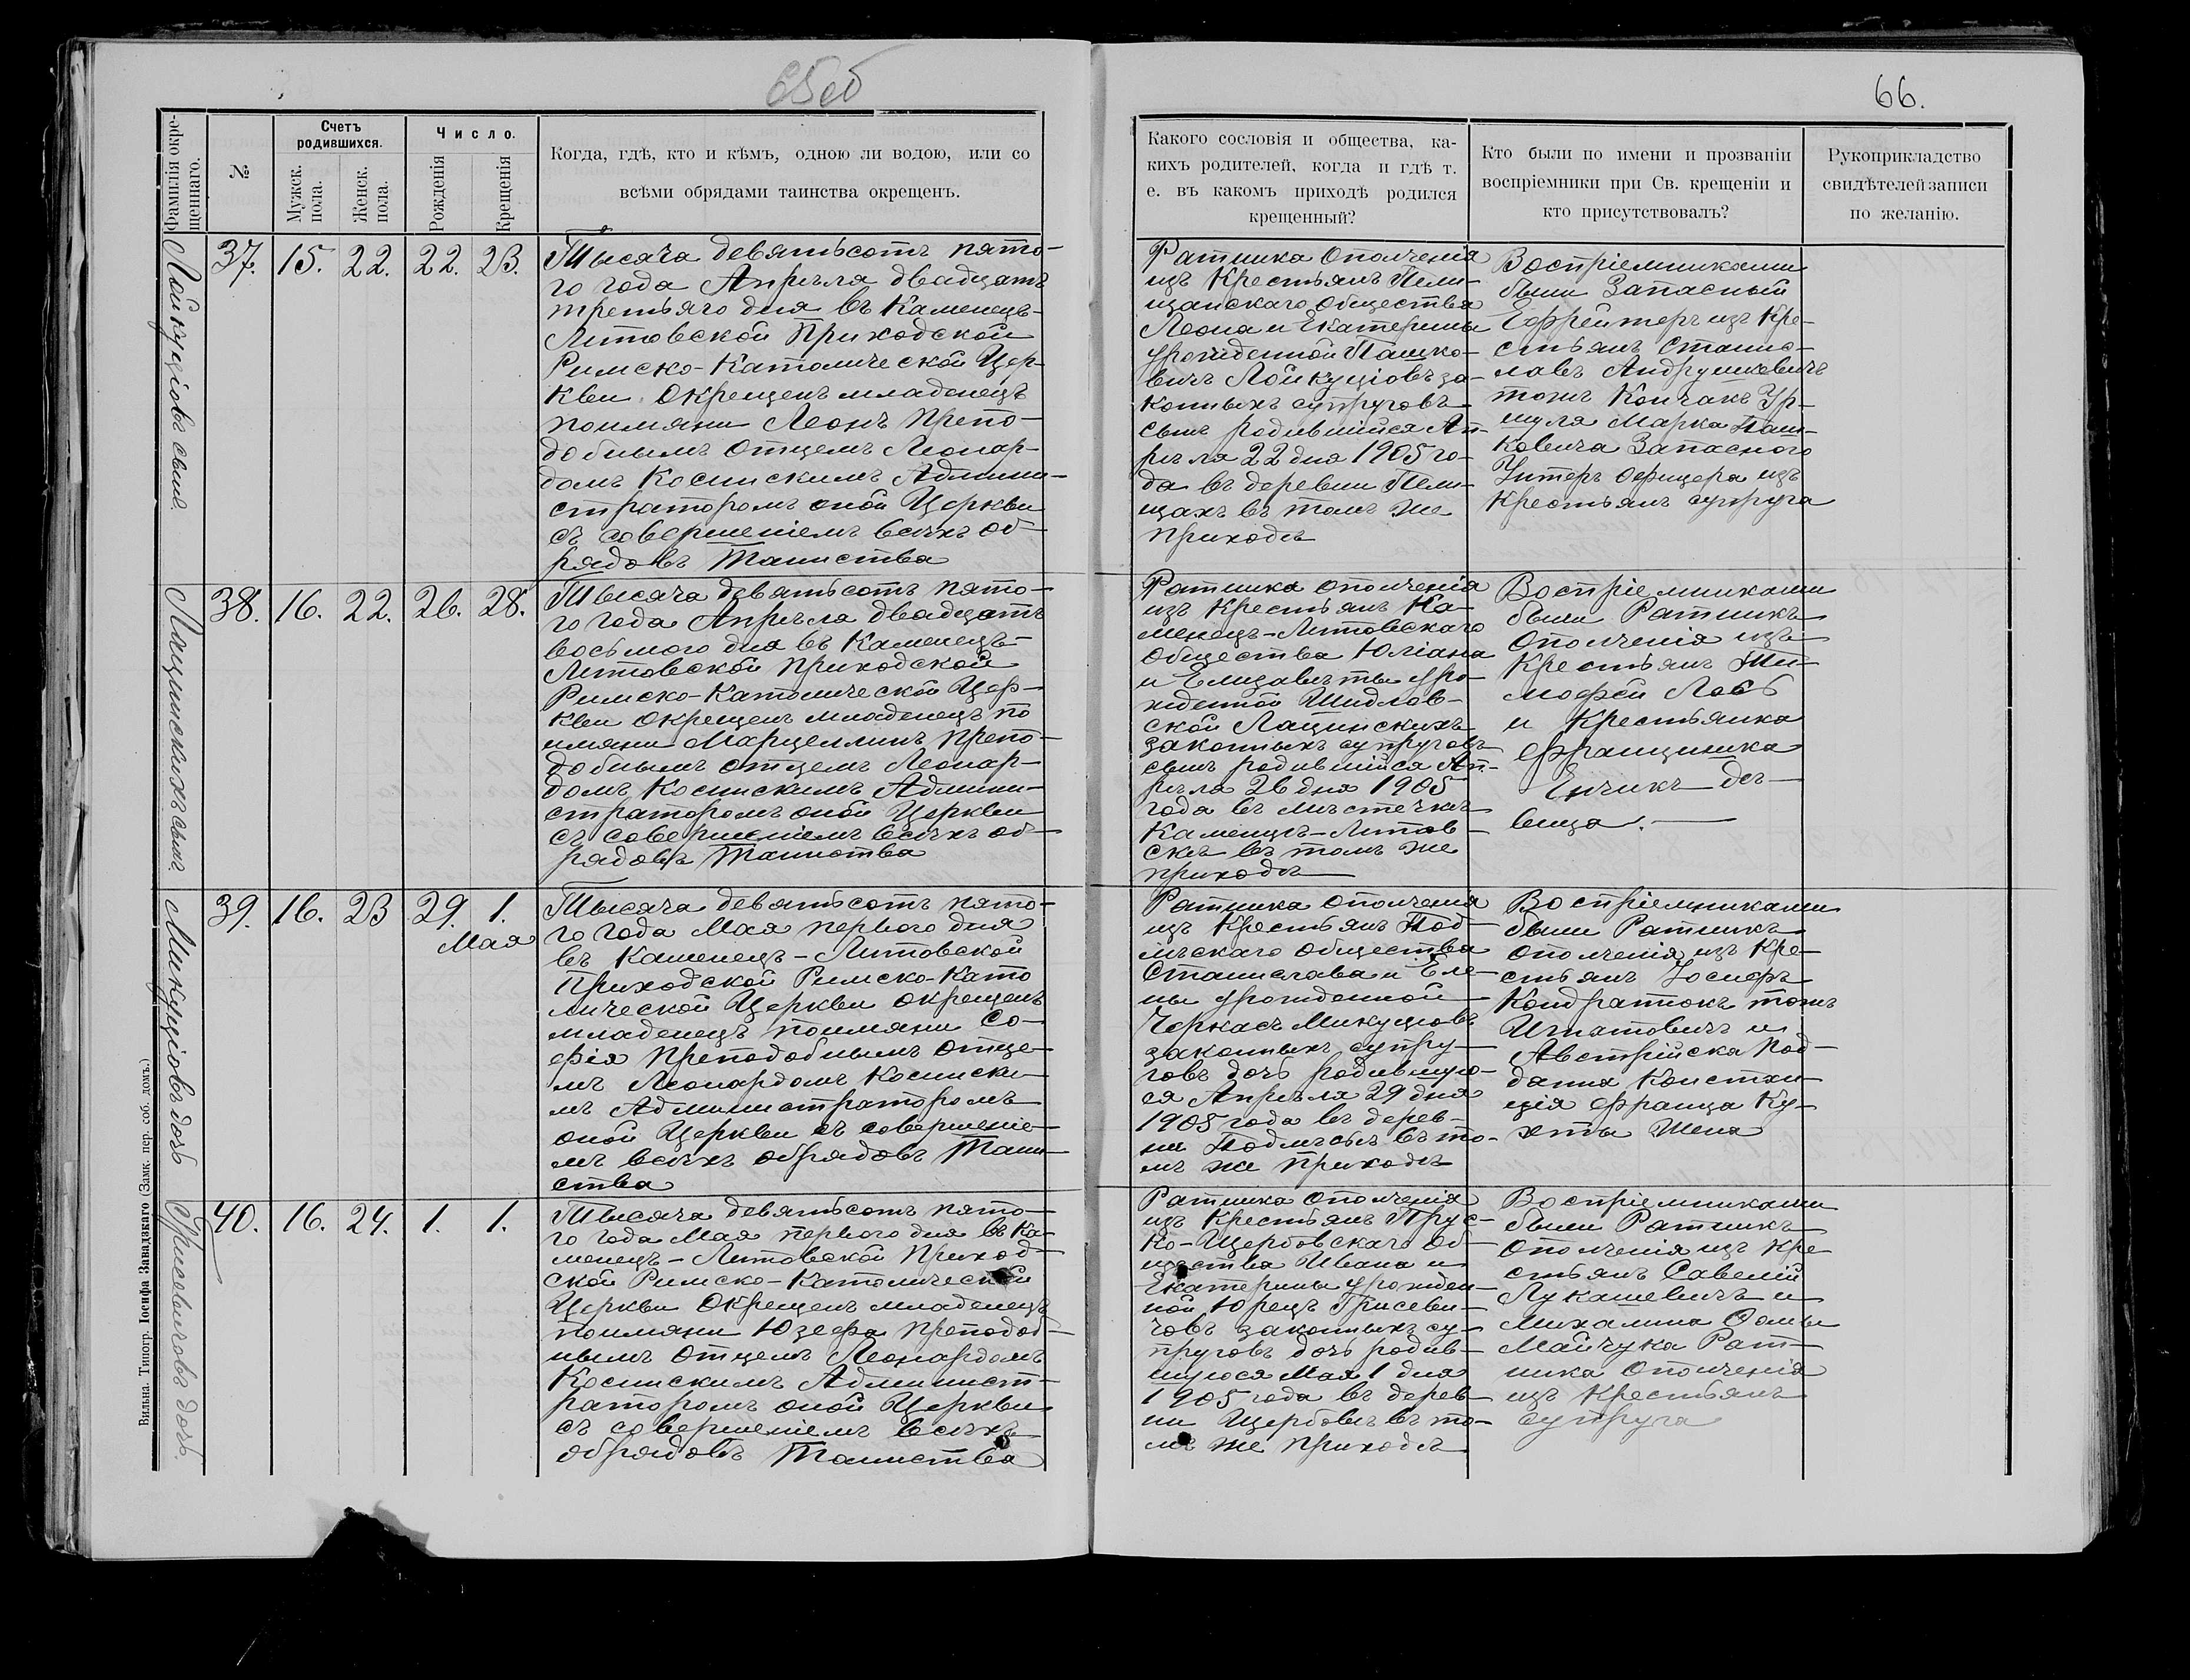 65об
66.
Фамилія окре-
щеннаго.
№
Счетъ
родившихся.
Мужск.
пола.
Женск.
пола.
Число.
Рожденія
Крещенія
Когда, гдѣ, кто и кѣмъ, одною ли водою, или со
всѣми обрядами таинства окрещенъ.
Какого сословія и общества, ка-
кихъ родителей, когда и гдѣ т.
е. въ какомъ приходѣ родился
крещенный?
Кто были по имени и прозванію
воспріемники при Св. крещеніи и
кто присутствовалъ?
Рукоприкладство
свидѣтелей записи
по желанію.
Лойкуціовъ сынъ
37. 15. 22. 22. 23.
Тысяча девятьсотъ пято-
го года Апрѣля двадцать
третьяго дня въ Каменецъ-
Литовской Приходской
Римско-Католической Цер-
кви окрещенъ младенецъ
поимяни Леонъ Препо-
добнымъ Отцемъ Леонар-
домъ Коснискимъ Админи-
страторомъ оной Церкви
съ совершеніемъ всѣхъ об-
рядовъ Таинства
Ратника Ополченія
изъ Крестьянъ Пели-
щанскаго Общества
Леона и Екатерины
урожденной Пашко-
вичъ Лойкуціовъ за-
конныхъ супруговъ
сынъ родившійся Ап-
рѣля 22 дня 1905 го-
да въ деревни Пели-
щахъ въ томъ же
приходѣ
Воспріемниками
были Запасный
Ефрейторъ изъ Кре-
стьянъ Станис-
лавъ Андрушкевичъ
тожъ Кончакъ Ур-
шуля Марка Паш-
ковича Запаснаго
Унтеръ Офицера изъ
Крестьянъ супруга
Лащинскихъ сынъ.
38. 16. 22. 26. 28.
Тысяча девятьсотъ пято-
го года Апрѣля двадцать
восьмого дня въ Каменецъ-
Литовской Приходской
Римско-Католической Цер-
кви окрещенъ младенецъ по
имяни Марцеллинъ Препо-
добнымъ отцемъ Леонар-
домъ Коснискимъ Админи-
страторомъ оной Церкви
съ совершеніемъ всѣхъ об-
рядовъ Таинства
Ратника ополченія
изъ Крестьянъ Ка-
менецъ-Литовскаго
Общества Юліана
и Елизаветы уро-
жденной Шидлов-
ской Лащинскихъ
законныхъ супруговъ
сынъ родившійся Ап-
рѣля 26 дня 1905
года въ мѣстечкѣ
Каменцѣ-Литов-
скѣ въ томъ же
приходѣ
Воспріемниками
были Ратникъ
Ополченія изъ
Крестьянъ Ти-
мофей
и Крестьянка
Францишка
Енчикъ дѣ-
вица.
Микуціовъ дочь
39. 16. 23 29. 1.
Мая
Тысяча девятьсотъ пято-
го года Мая перваго дня
въ Каменецъ-Литовской
Приходской Римско-Като
лической Церкви окрещенъ
младенецъ поимяни Со-
фія Преподобнымъ Отце-
мъ Леонардомъ Косниски-
мъ Администраторомъ
оной Церкви съ совершеніе-
мъ всѣхъ обрядовъ Таин-
ства
Ратника ополченія
изъ Крестьянъ Под-
лѣскаго общества
Станислава и Еле-
ны урожденной
Черкасъ Микуціовъ
законныхъ супру-
говъ дочь родившую-
ся Апрѣля 29 дня
1905 года въ дерев-
ни Подлѣсьѣ въ то-
мъ же приходѣ
Воспріемниками
были Ратникъ
ополченія изъ Кре-
стьянъ Іосифъ
Кондратюкъ тожъ
Игнатовичъ и
Австрійска под-
данна Констан-
ція Франца Ку-
хты жена
Грисевичовъ дочь.
40. 16. 24. 1. 1.
Тысяча девятьсотъ пято-
го года Мая перваго дня въ Ка-
менецъ-Литовской Приход-
ской Римско-Католической
Церкви Окрещенъ младенецъ
поимяни Юзефа Преподоб-
нымъ Отцемъ Леонардомъ
Коснискимъ Админист-
раторомъ оной Церкви
съ совершеніемъ всѣхъ
обрядовъ Таинства
Ратника ополченія
изъ Крестьянъ Прус-
ко-Щербовскаго Об-
щества Ивана и
Екатерины урожден-
ной Юрецъ Грисеви-
човъ законныхъ су-
пруговъ дочь родив-
шуюся Мая 1 дня
1905 года въ дерев-
ни Щербовѣ въ то-
мъ же приходѣ
Воспріемниками
были Ратникъ
Ополченія изъ Кре
стьянъ Савелій
Лукашевичъ и
Михалина Фомы
Майчука Рат-
ника Ополченія
изъ Крестьянъ
супруга
Вильна. Типогр. Іосифа Завадзкаго (Замк. пер. соб. домъ.)